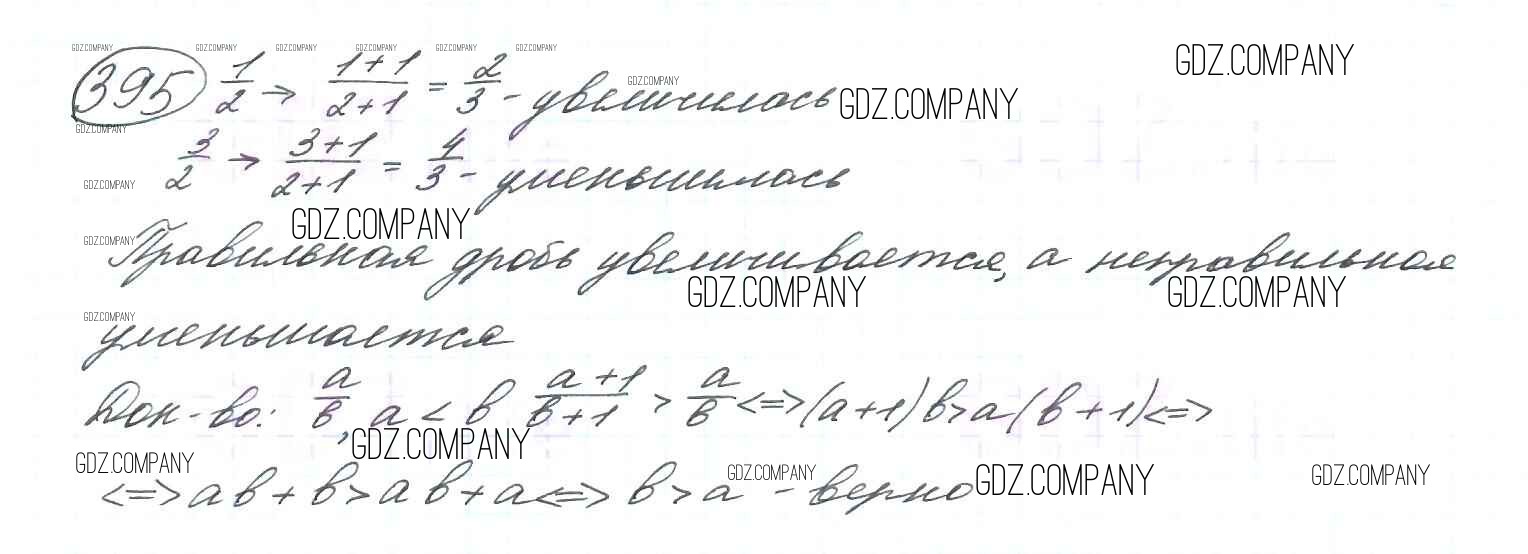 GDZ.COMPANY GDZ.COMPANY GDZ.COMPANY GDZ.COMPANY GDZ.COMPANY GDZ.COMPANY GDZ.COMPANY
395 1/2 → (1+1)/(2+1) = 2/3 - увеличилась GDZ.COMPANY GDZ.COMPANY
GDZ.COMPANY
3/2 → (3+1)/(2+1) = 4/3 - уменьшилась
GDZ.COMPANY
GDZ.COMPANY
GDZ.COMPANY Правильная дробь увеличивается, а неправильная
GDZ.COMPANY GDZ.COMPANY
GDZ.COMPANY
уменьшается
Док-во: a/в, a < в (a+1)/(в+1) > a/в <=> (a+1)в > a(в+1) <=>
GDZ.COMPANY
GDZ.COMPANY GDZ.COMPANY GDZ.COMPANY GDZ.COMPANY
<=> aв + в > aв + a <=> в > a - верно